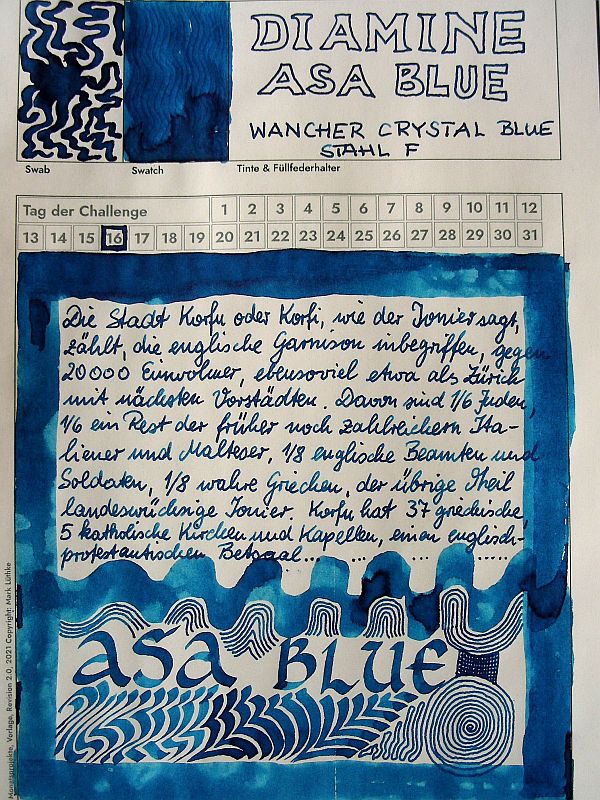 DIAMINE
ASA BLUE
WANCHER CRYSTAL BLUE
STAHL F
Swab
Swatch
Tinte & Füllfederhalter
Tag der Challenge 1 2 3 4 5 6 7 8 9 10 11 12
13 14 15 16 17 18 19 20 21 22 23 24 25 26 27 28 29 30 31
Die Stadt Korfu oder Korfi, wie der Jonier sagt,
zählt, die englische Garnison inbegriffen, gegen
20000 Einwohner, ebensoviel etwa als Zürich
mit nächsten Vorstädten. Davon sind 1/6 Juden,
1/6 ein Rest der früher noch zahlreichern Ita-
liener und Malteser, 1/8 englische Beamten und
Soldaten, 1/8 wahre Griechen, der übrige Theil
landeswüchsige Jonier. Korfu hat 37 griechische,
5 katholische Kirchen und Kapellen, einen englisch-
protestantischen Betsaal...............
ASA BLUE
Monatsprojekte, Vorlage, Revision 2.0, 2021 Copyright: Mark Lüthke